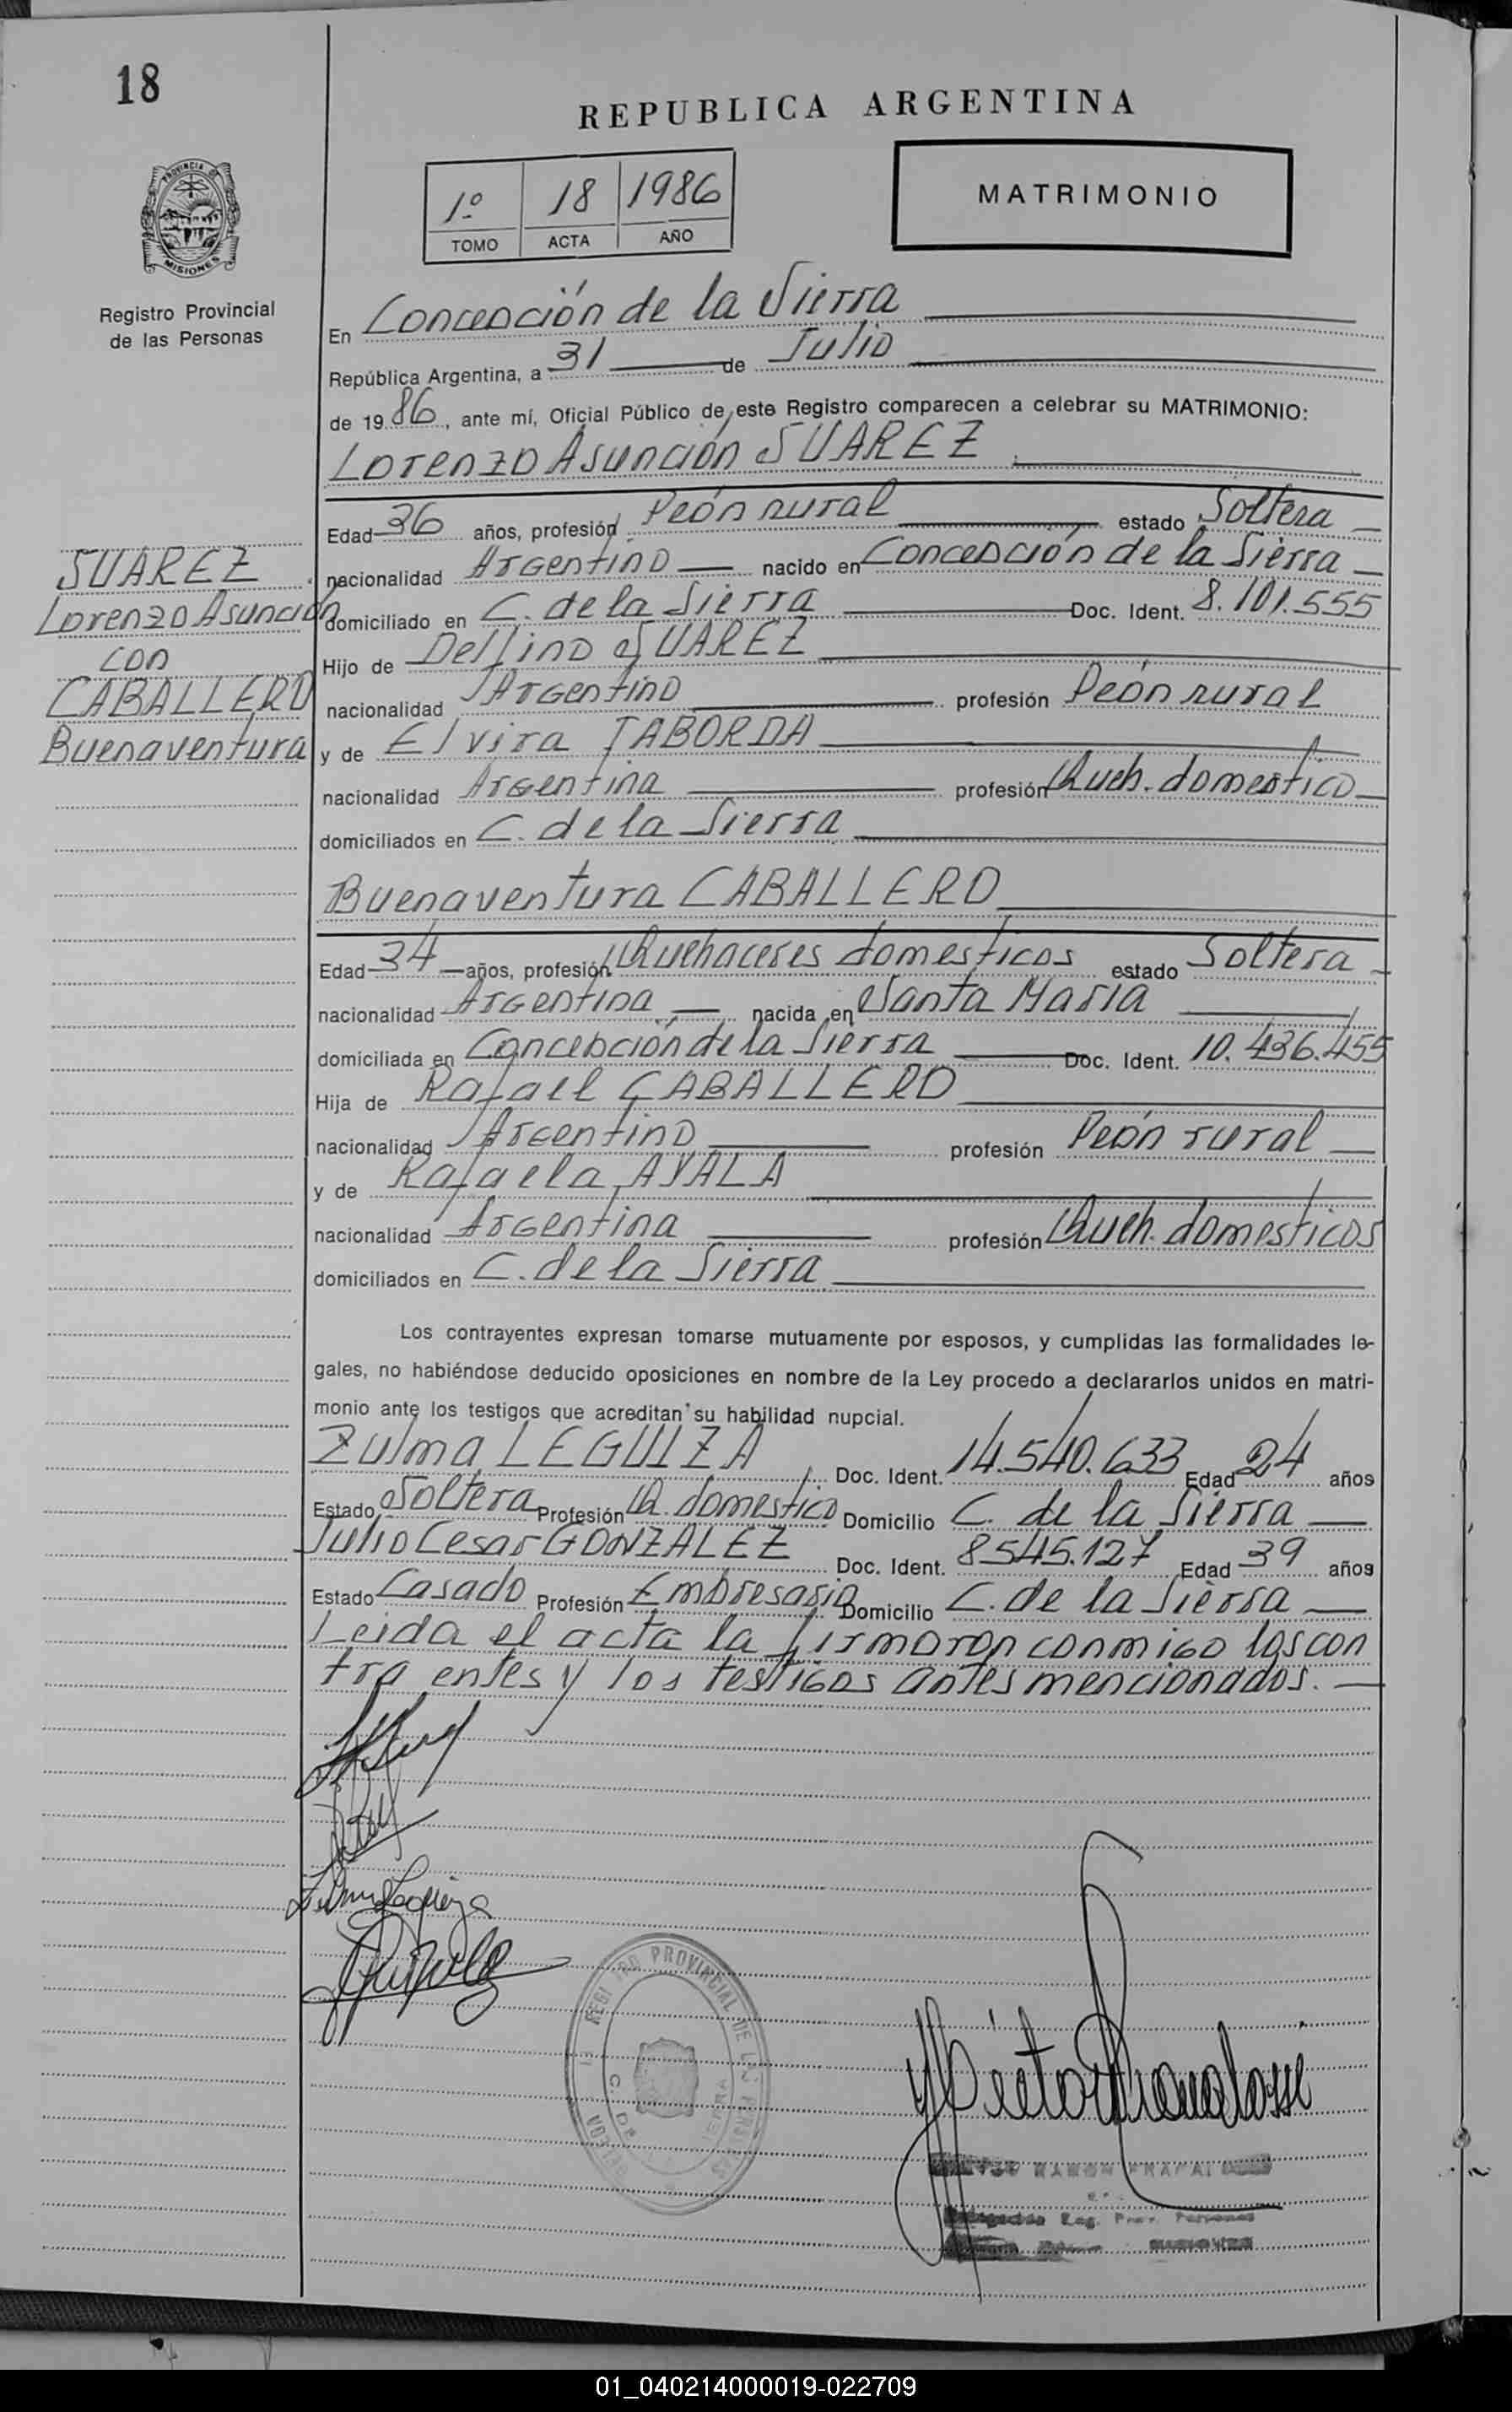 18
REPUBLICA ARGENTINA
PROVINCIA DE
MISIONES
Registro Provincial
de las Personas
1º 18 1986
TOMO ACTA AÑO
MATRIMONIO
En Concepción de la Sierra
República Argentina, a 31 de Julio
de 1986, ante mí, Oficial Público de este Registro comparecen a celebrar su MATRIMONIO:
Lorenzo Asunción SUAREZ
Edad 36 años, profesión Peón rural estado Soltera
nacionalidad Argentino nacido en Concepción de la Sierra
domiciliado en C. de la Sierra Doc. Ident. 8.101.555
Hijo de Delfino SUAREZ
nacionalidad Argentino profesión Peón rural
y de Elvira TABORDA
nacionalidad Argentina profesión Queh. domestico
domiciliados en C. de la Sierra
SUAREZ
Lorenzo Asunción
con
CABALLERO
Buenaventura
Buenaventura CABALLERO
Edad 34 años, profesión Quehaceres domesticos estado Soltera
nacionalidad Argentina nacida en Santa Maria
domiciliada en Concepción de la Sierra Doc. Ident. 10.436.455
Hija de Rafael CABALLERO
nacionalidad Argentino profesión Peón rural
y de Rafaela AYALA
nacionalidad Argentina profesión Queh. domesticos
domiciliados en C. de la Sierra
Los contrayentes expresan tomarse mutuamente por esposos, y cumplidas las formalidades le-
gales, no habiéndose deducido oposiciones en nombre de la Ley procedo a declararlos unidos en matri-
monio ante los testigos que acreditan su habilidad nupcial.
Zulma LEGUIZA Doc. Ident. 14.540.633 Edad 24 años
Estado Soltera Profesión Q. domestico Domicilio C. de la Sierra
Julio Cesar GONZALEZ Doc. Ident. 8545.127 Edad 39 años
Estado Casado Profesión Empresario Domicilio C. de la Sierra
Leida el acta la firmaron conmigo los con
tra entes y los testigos antes mencionados.
Zulma Leguiza
REGISTRO PROVINCIAL DE LAS PERSONAS
C. DE SIERRA
RAMON
Delegación Reg. Prov. Personas
MISIONES
01_040214000019-022709